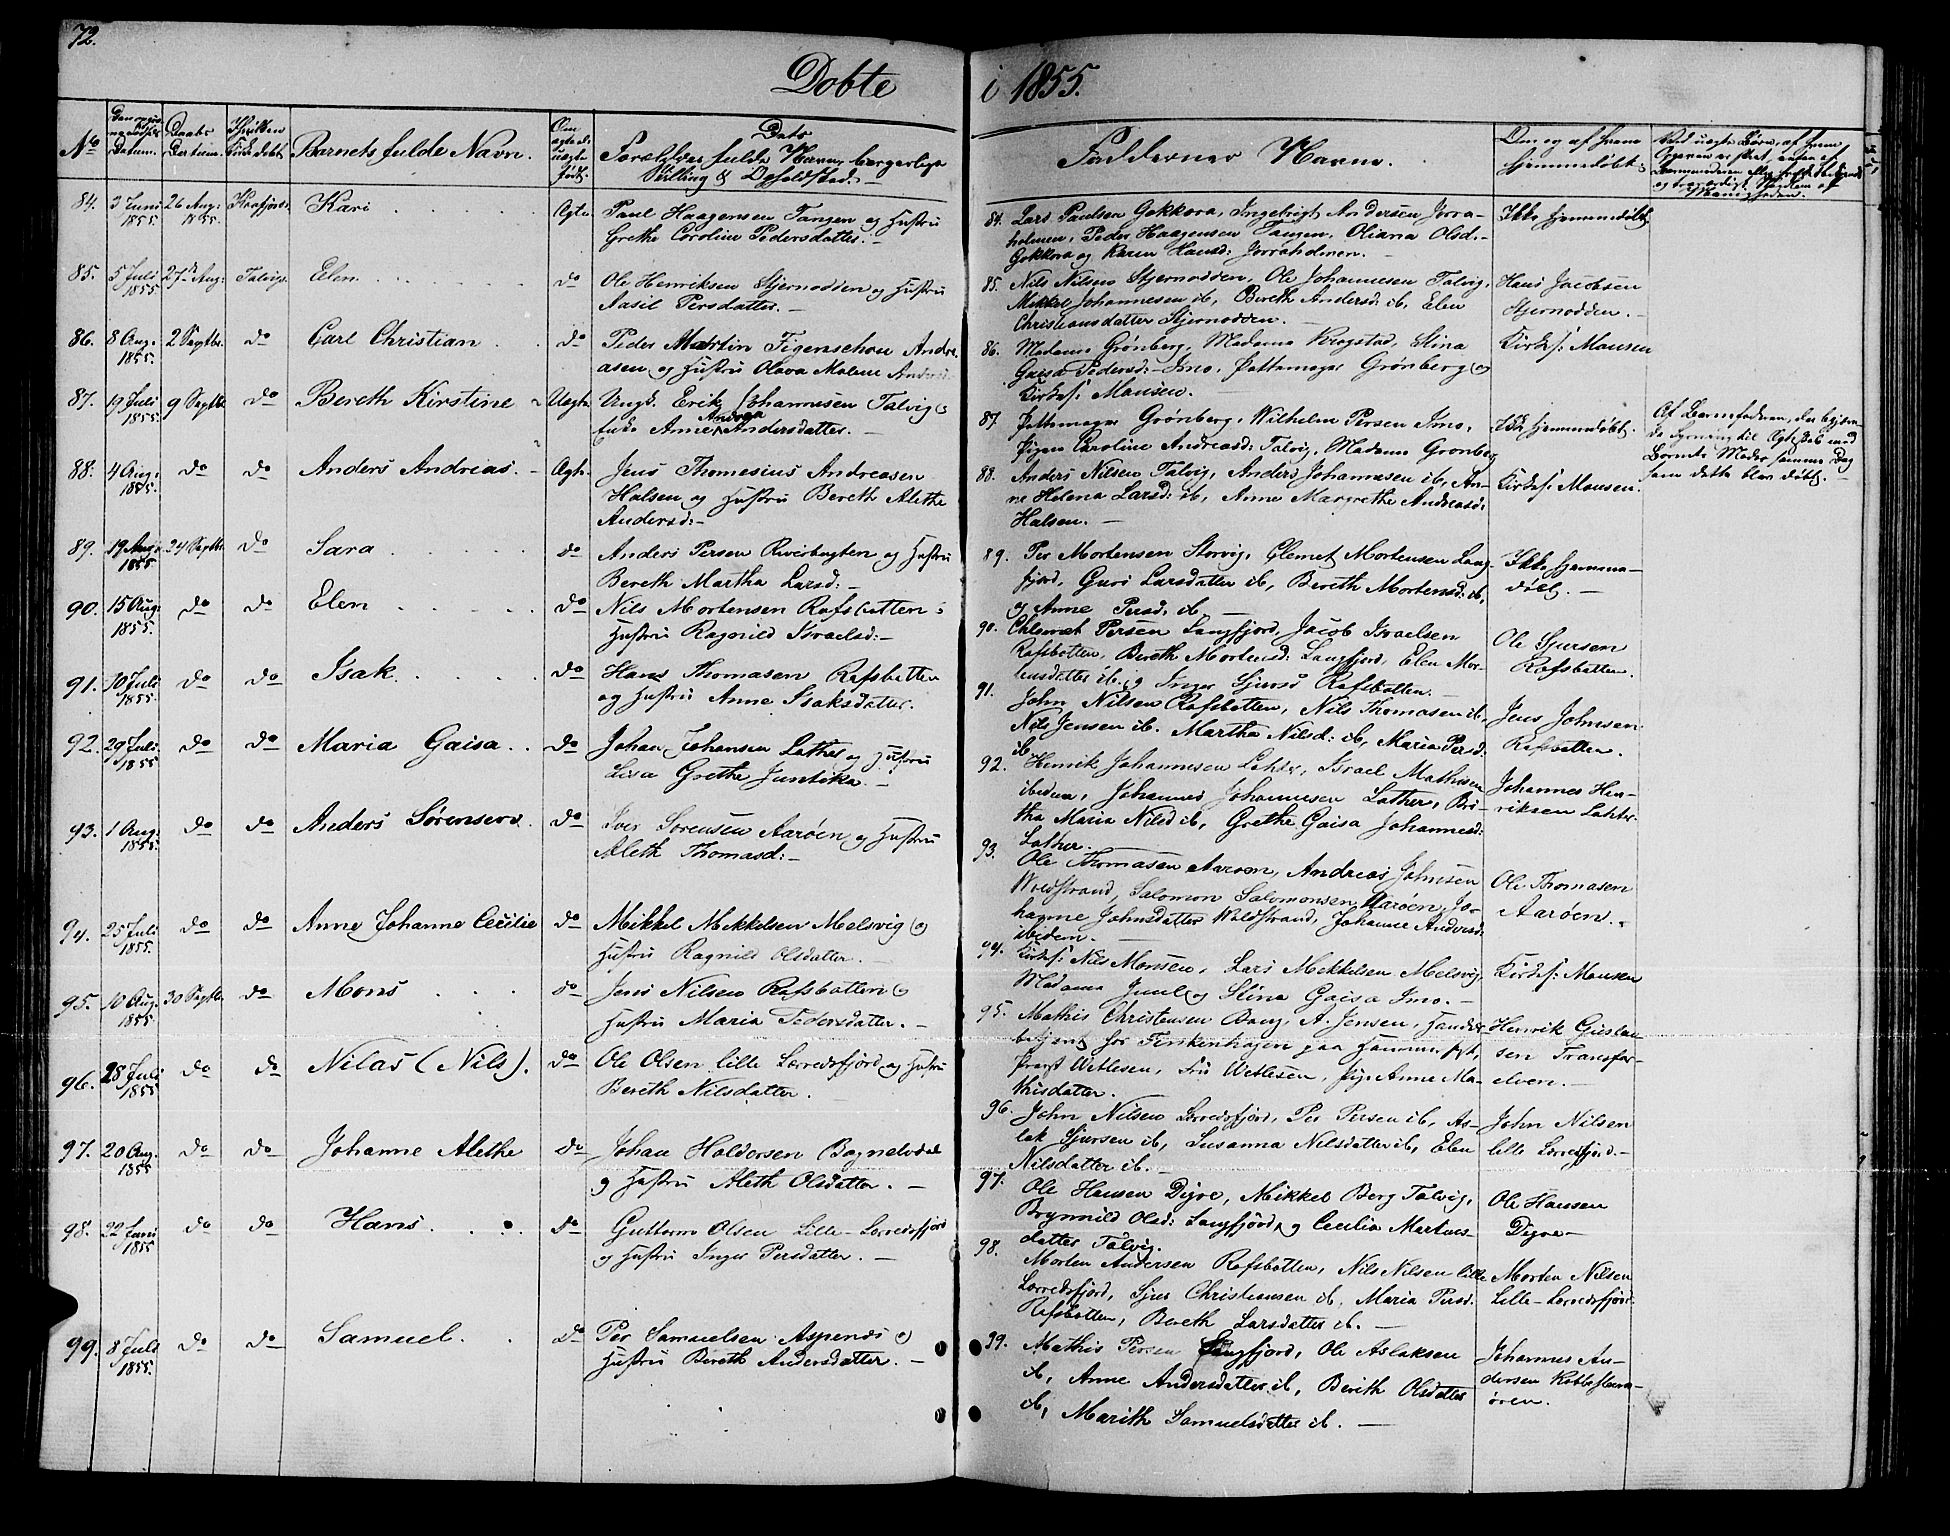 72.
Døbte
i 1855.
No
Datum.
Daabs
Datum.
Kirke døbt.
Barnets fulde Navn.
Om
ægte el:
uægte
født.
Dets
Forældres fulde Navne, borgerlige
Stilling & Opholdssted. —
84. 3 Juni 1855. 26 Aug: 1855. Kaafjord. Kari Ægte
Paul Haagensen Tangen og Hustru
Grethe Caroline Pedersdatter. —
85. 5 Juli 1855 27d Aug: Talvig. Elen do
Ole Henriksen Stjernodden og Hustru
Aasil Persdatter. —
86. 8 Aug. 1855. 2 Septbr. do Carl Christian do
Peder Martin Figenschou Andre
asen og Hustru Olava Malene Andersd.
87. 19 Juli 1855. 9 Septbr do Bereth Kirstine Uægte
Ungk. Erik Johannesen Talvig &
Anne Andrea Andersdatter. —
88. 4 Aug. 1855. do do Anders Andreas. Ægte.
Jens Thomesius Andreasen
Halsen og Hustru Bereth Alethe
Andersd: —
89. 19 Aug. 1855 24 Septbr. do Sara do
Anders Persen Riverbugten og Hustru
Bereth Martha Larsd: —
90. 15 Aug. 1855. do do Elen do
Nils Mortensen Rafsbotten &
Hustru Ragnild Israelsd: —
91. 10 Juli 1855. do do Isak do
Hans Thomasen Rafsbotten
og Hustru Anne Isaksdatter.
92. 29 Juli 1855 do do Maria Gaisa. do
Johan Johansen Lather og Hustru
Lisa Grethe Juntika. —
93. 1 Aug. 1855. do do Anders Sørensen. do
Iver Sørensen Aarøen og Hustru
Aleth Thomasd: —
94. 25 Juli 1855. do do Anne Johanne Cecilie do
Mikkel Mikkelsen Melsvig og
Hustru Ragnild Olsdatter. —
95. 10 Aug. 1855. 30 Septbr. do Mons do
Jens Nilsen Rafsbotten og
Hustru Maria Pedersdatter. —
96. 28 Juli 1855 do do Nilas (Nils). do
Ole Olsen lille Lerredsfjord og Hustru
Bereth Nilsdatter.
97. 20 Aug. 1855 do do Johanne Alethe do
Johan Haldorsen Bognelvdal
og Hustru Aleth Olsdatter. —
98. 22 Juni 1855 do do Hans. do
Guttorm Olsen Lille-Lerredsfjord
og Hustru Inger Persdatter. —
99. 8 Juli 1855. do do Samuel. do
Per Samuelsen Aspenæs og
Hustru Bereth Andersdatter. —
Faddernes Navne.
Om og af hvem
hjemmedøbt.
84. Lars Paulsen Gokkora, Ingebrigt Andersen Jorra-
holmen, Peder Haagensen Tangen, Oliana Olsd:
Gokkora og Karen Hansd: Jorraholmen.
Ikke hjemmedøbt
85. Nils Nilsen Stjernodden, Ole Johannesen Talvig,
Mikkel Johannesen ib, Bereth Andersd: ib, Elen
Christiansdatter Stjernodden. —
Hans Jacobsen
Stjernodden. —
86. Madame Grønberg, Madame Krogstad, Stina
Gaisa Pedersd: Imo, Pottemager Grønberg og
Kirkes: Monsen.
Kirkes: Monsen
87. Pottemager Grønberg, Wilhelm Persen Imo,
Pigen Caroline Andreasd: Talvig, Madame Grønberg
Ikke hjemmedøbt.
Af Barnefaderen, der begjæra-
de Lysning til Ægteskab med
Barnets Moder samme Dag
som dette blev døbt. —
88. Anders Nilsen Talvig, Anders Johannesen ib, An-
ne Helena Larsd: ib, Anne Margrethe Andreasd:
Halsen. —
Kirkes: Monsen.
89. Per Mortensen Storvig, Clemet Mortensen Lang-
fjord, Guro Larsdatter ib, Bereth Mortensd: ib,
og Anne Persd: ib. —
Ikke hjemme-
døbt. —
90. Chlemet Persen Langfjord, Jacob Israelsen
Rafsbotten, Bereth Mortensd: Langfjord, Elen Mor-
tensdatter ib. og Inger Sjursd Rafsbotten. —
Ole Sjursen
Rafsbotten.
91. John Nilsen Rafsbotten, Nils Thomasen ib.
Nils Jensen ib. Martha Nilsd: ib, Maria Persd:
ib.
Jens Johnsen
Rafsbotten.
92. Henrik Johannesen Lahter, Israel Mathisen
ibidem, Johannes Johannesen Lather, Bri-
tha Maria Nilsd ib, Grethe Gaisa Johannesd:
Lather.
Johannes Hen-
riksen Lahter.
93. Ole Thomasen Aarøen, Andreas Johnsen
Woldstrand, Salomon Salomonsen Aarøen, Jo-
hanne Johnsdatter Woldstrand, Johanne Andersd:
ibidem. —
Ole Thomasen
Aarøen. —
94. Kirkes: Nils Monsen, Lars Mikkelsen Melsvig,
Madame Juul og Stina Gaisa Imo. —
Kirkes: Monsen
95. Mathis Christensen Bang, A. Jensen, Handels-
betjent hos Finkenhagen paa Hammerfest,
Provst Wetlesen, Fru Wetlesen, Pige Anne Ma-
thisdatter.
Henrik Giertsen
sen Transfar-
elven. —
96. John Nilsen Lerredsfjord, Per Persen ib, As-
lak Sjursen ib, Susanna Nilsdatter ib, Elen
Nilsdatter ib. —
John Nilsen
lille Lerredsfjord. —
97. Ole Hansen Digre, Mikkel Berg Talvig,
Brynnild Olsd: Langfjord, og Cecilia Martins-
datter Talvig.
Ole Hansen
Digre —
98. Morten Andersen Rafsbotten, Nils Nilsen lille
Lerredsfjord, Sjur Christiansen ib, Maria Persd:
Rafsbotten, Bereth Larsdatter ib. —
Morten Nilsen
Lille-Lerredsfjord.
99. Mathis Persen Langfjord, Ole Aslaksen
ib, Anne Andersdatter ib, Berith Olsdatter
ib, Marith Samuelsdatter ib. —
Johannes An-
dersen
øren.